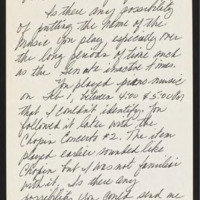 Is there any possibility
of putting the name of the
music you play especially over
the long periods of time such
as the Senate inactive times.
You played piano music
on Feb 1, between 4:30 & 5:00 so
that I couldn't identify. You
followed it later with the
Chopin Concerto #2. The item
played earlier sounded like
Chopin but I was not familiar
with it. Is there any
possibility you could send me